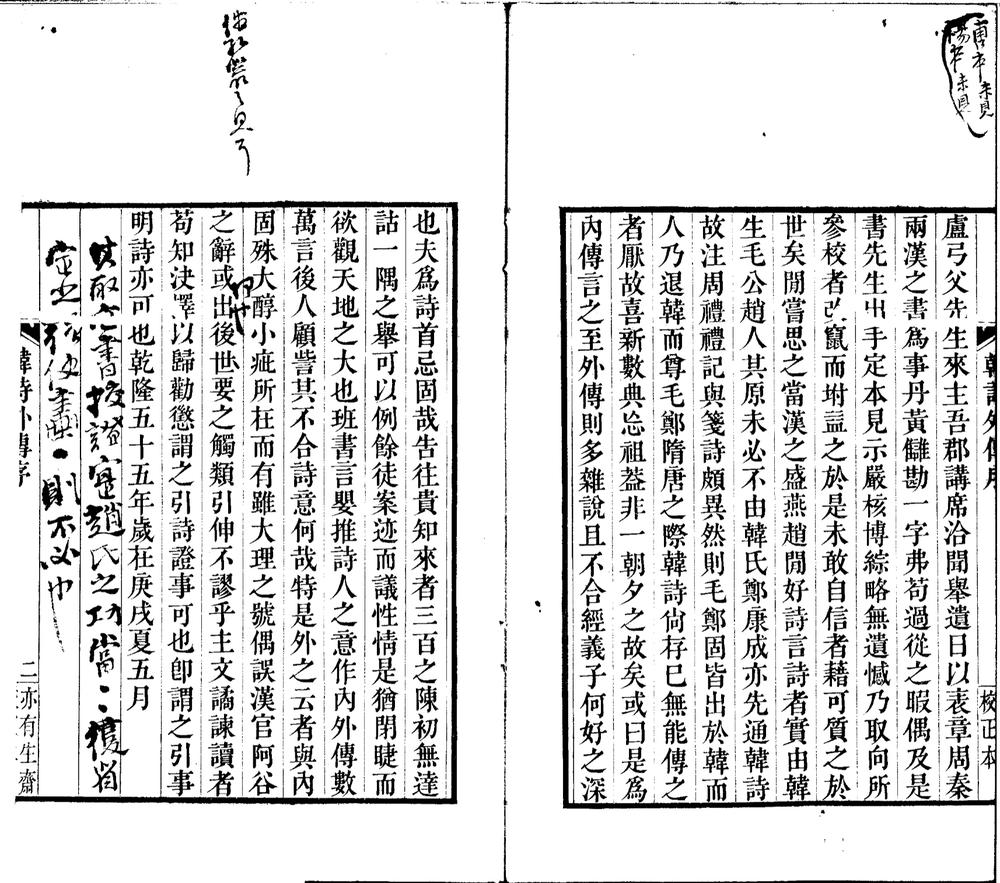 盧本未見
楊本未見
盧弓父先生來主吾郡講席洽聞舉遺日以表章周秦
兩漢之書爲事丹黃讎勘一字弗苟過從之暇偶及是
書先生出手定本見示嚴核博綜略無遺憾乃取向所
參校者改竄而坿益之於是未敢自信者藉可質之於
世矣閒嘗思之當漢之盛燕趙閒好詩言詩者實由韓
生毛公趙人其原未必不由韓氏鄭康成亦先通韓詩
故注周禮禮記與箋詩頗異然則毛鄭固皆出於韓而
人乃退韓而尊毛鄭隋唐之際韓詩尙存已無能傳之
者厭故喜新數典忘祖葢非一朝夕之故矣或曰是爲
內傳言之至外傳則多雜說且不合經義子何好之深
韓詩外傳序
校正本
也夫爲詩首忌固哉告往貴知來者三百之陳初無達
詁一隅之舉可以例餘徒案迹而議性情是猶閉睫而
欲觀天地之大也班書言嬰推詩人之意作內外傳數
萬言後人顧訾其不合詩意何哉特是外之云者與內
固殊大醇小疵所在而有雖大理之號偶誤漢官阿谷
之辭或出後世要之觸類引伸不謬乎主文譎諫讀者
苟知決擇以歸勸懲謂之引詩證事可也卽謂之引事
明詩亦可也乾隆五十五年歲在庚戌夏五月
韓詩外傳序
二
亦有生齋
趙氏之功當
則不必